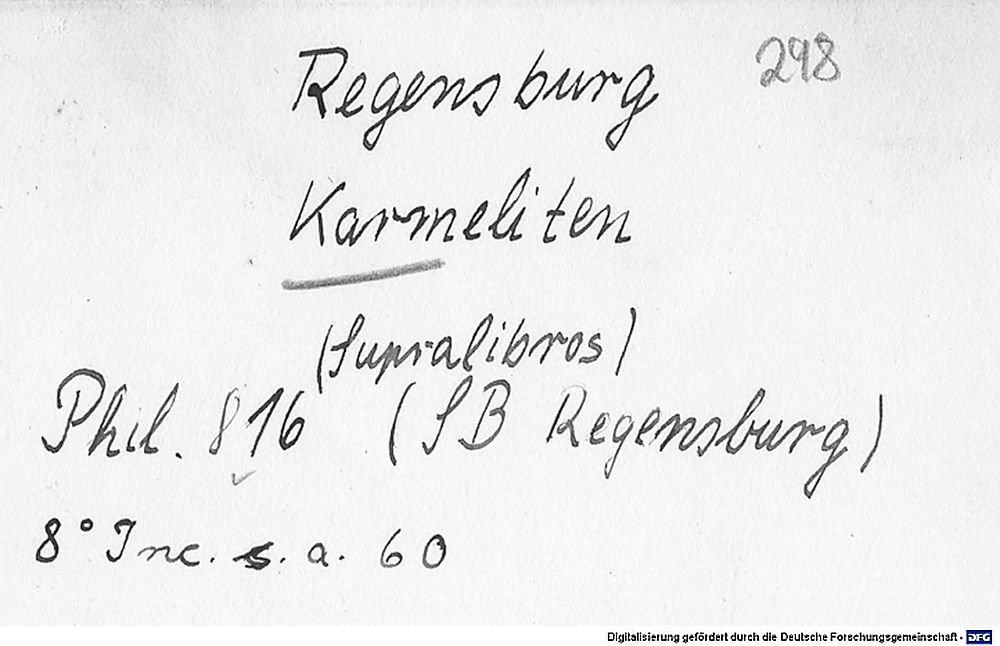 298
Regensburg
Karmeliten
(Supralibros)
Phil. 816 (SB Regensburg)
8° Inc. s. a. 60
Digitalisierung gefördert durch die Deutsche Forschungsgemeinschaft - DFG